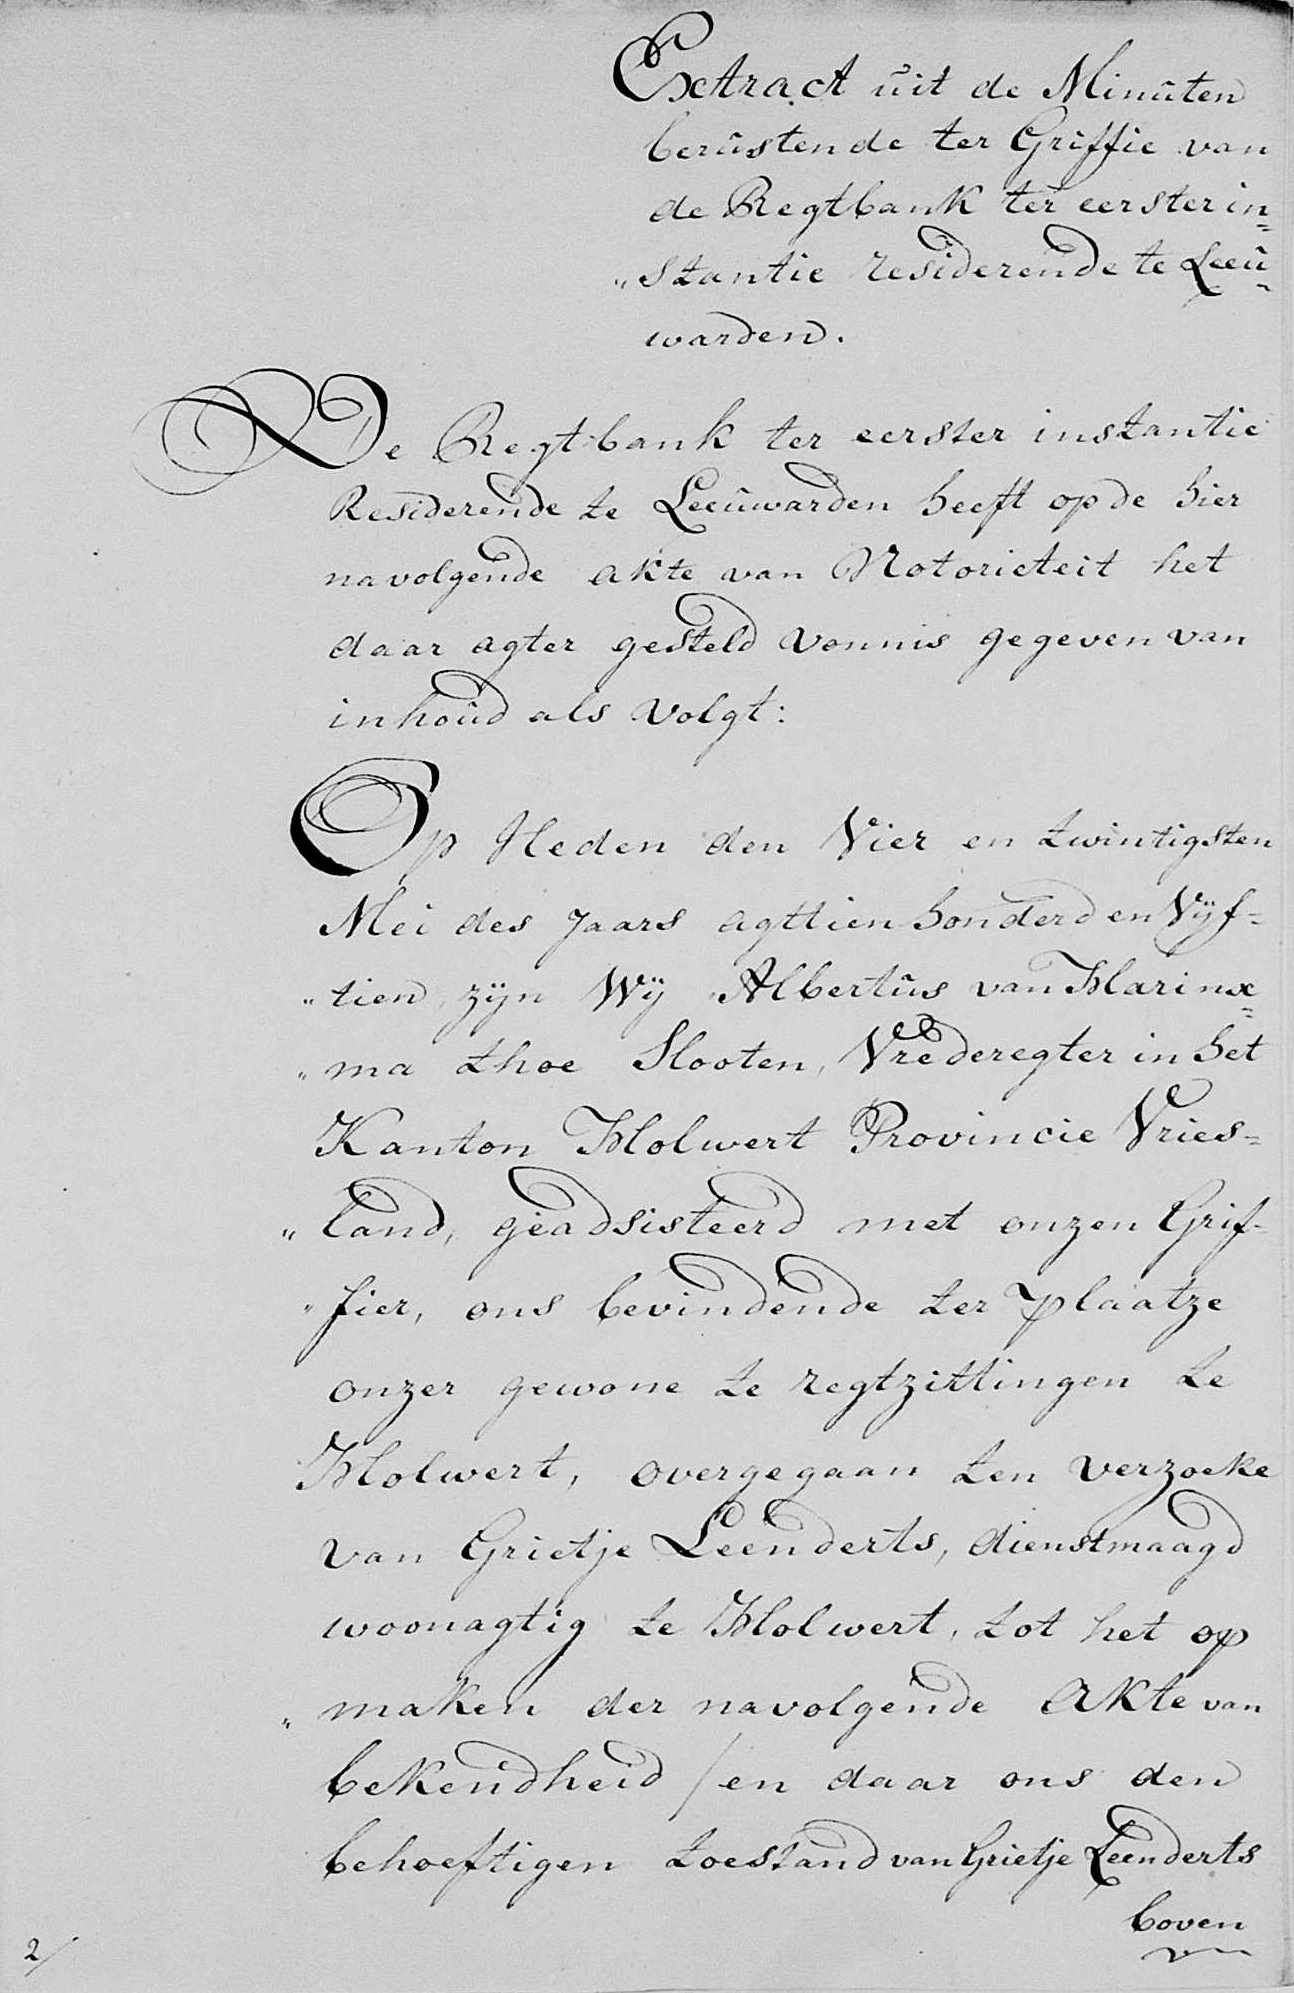 Extract uit de Minuten
berustende ter Griffie van
de Regtbank ter eerster in=
„stantie residerende te Leeu=
warden.
De Regtbank ter eerster instantie
Residerende te Leeuwarden heeft op de hier
navolgende akte van Notorieteit het
daar agter gesteld vonnis gegeven van
inhoud als volgt:
Op Heden den Vier en twintigsten
Mei des Jaars agttien honderd en Vijf=
„tien zijn Wij Albertus van Harinx=
„ma thoe Slooten, Vrederegter in het
Kanton Holwert Provincie Vries=
„land, geadsisteerd met onzen Grif=
„fier, ons bevindende ter plaatze
onzer gewone te regtzittingen te
Holwert, overgegaan ten verzoeke
van Grietje Leenderts, dienstmaagd
woonagtig te Holwert, tot het op
„maken der navolgende Akte van
bekendheid /en daar ons den
behoeftigen toestand van Grietje Leenderts
boven
2/